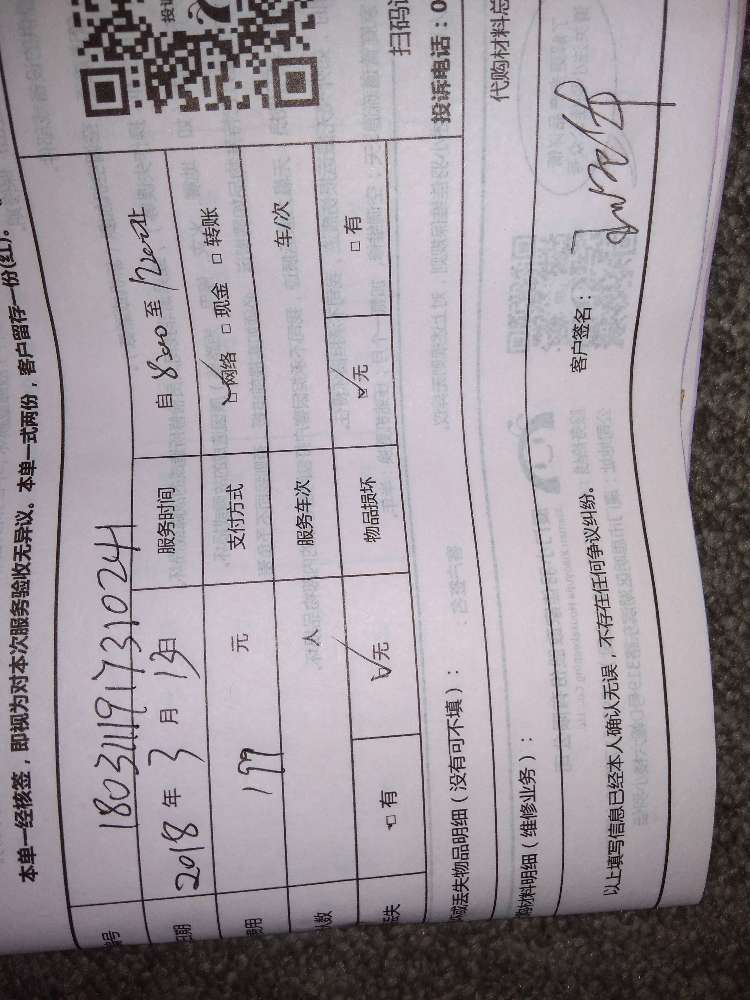 本单一经核签，即视为对本次服务验收无异议。本单一式两份，客户留存一份(红)。
编号 180311191731 0241
日期 2018 年 3 月 13 日 服务时间 自 8:00 至 12:00 止
费用 199 元 支付方式 ☑网络 □现金 □转账
人数 人 服务车次 车/次
丢失 □有 ☑无 物品损坏 ☑无 □有
投诉
扫码
投诉电话：0
坏或丢失物品明细（没有可不填）：
代购材料总
购材料明细（维修业务）：
客户签名：
以上填写信息已经本人确认无误，不存在任何争议纠纷。